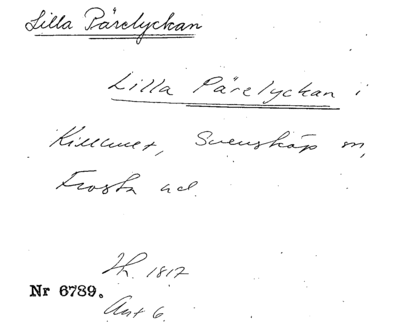 Lilla Pärelyckan
Lilla Pärelyckan i
Svensköp sn,
Frosta hd.
Jh. 1817
Nr 6789.
Akt 6.